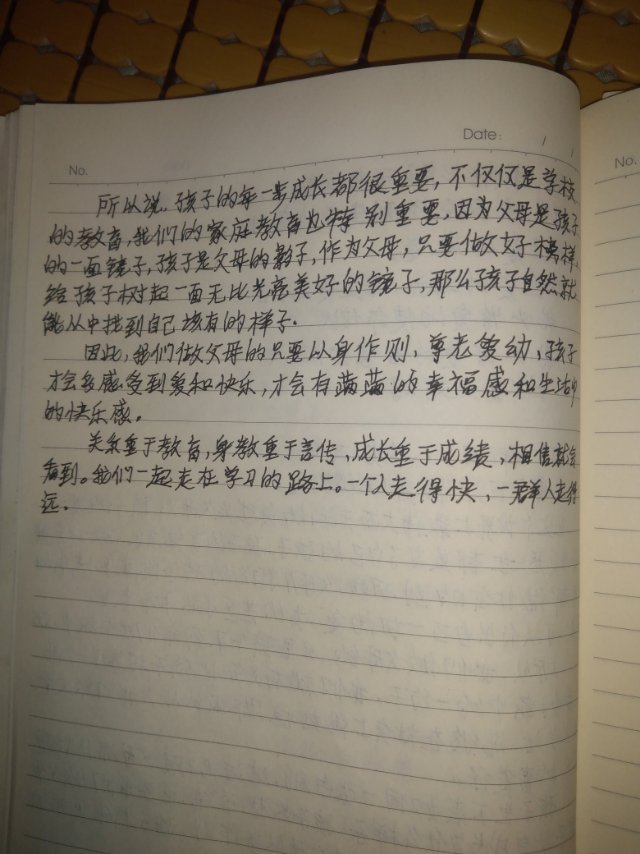 Date: / /
No.
No.
所以说，孩子的每一步成长都很重要，不仅仅是学校
的教育，我们的家庭教育也特别重要，因为父母是孩子
的一面镜子，孩子是父母的影子，作为父母，只要做好榜样，
给孩子树起一面无比光亮美好的镜子，那么孩子自然就
能从中找到自己该有的样子。
因此，我们做父母的只要以身作则，尊老爱幼，孩子
才会多感受到爱和快乐，才会有满满的幸福感和生活中
的快乐感。
关系重于教育，身教重于言传，成长重于成绩，相信就会
看到。我们一起走在学习的路上。一个人走得快，一群人走得
远。